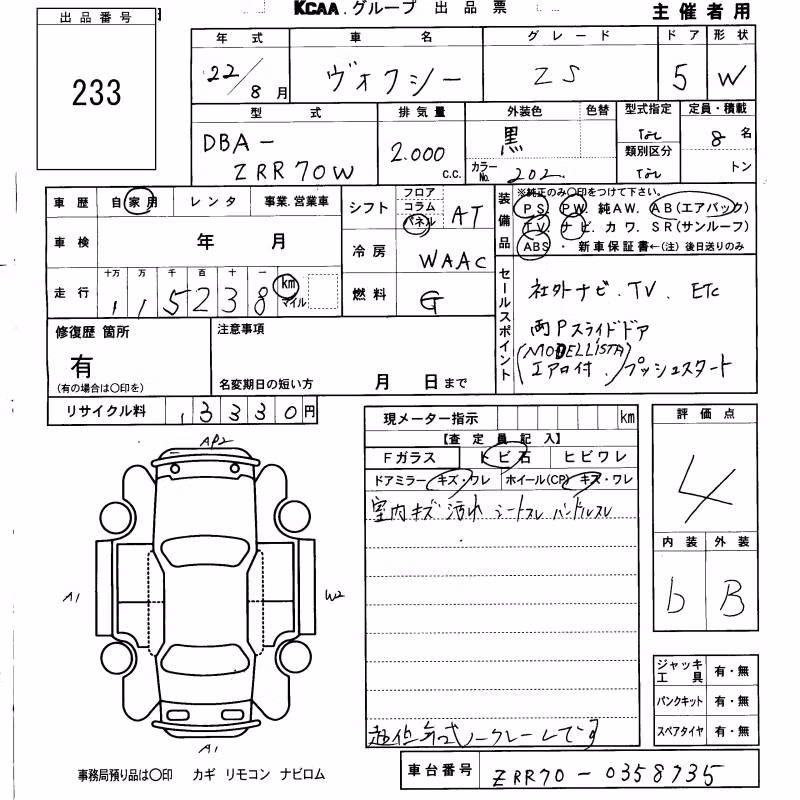 KCAA.グループ 出品票
主催者用
出品番号
233
年式 車名 グレード ドア 形状
22/8月 ヴォクシー ZS 5 W
型式 排気量 外装色 色替 型式指定 定員・積載
DBA-
ZRR70W
2.000 C.C.
黒
カラーNo. 202
類別区分
8名
トン
車歴 自家用 レンタ 事業.営業車
車検 年 月
走行 十万 万 千 百 十 一
115238 km マイル
シフト フロア コラム パネル AT
冷房 WAAC
燃料 G
装備品
※純正のみ〇印をつけて下さい。
PS. PW. 純AW. AB(エアバック)
TV. ナビ. カワ. SR(サンルーフ)
ABS ・ 新車保証書←(注) 後日送りのみ
セールスポイント
社外ナビ. TV. ETC
両Pスライドドア
(MODELLISTA
エアロ付.) プッシュスタート
修復歴 箇所
有
(有の場合は〇印を)
注意事項
名変期日の短い方 月 日まで
リサイクル料 13330円
現メーター指示 km
【査定員記入】
Fガラス トビ石 ヒビワレ
ドアミラー キズ・ワレ ホイール(CP) キズ・ワレ
室内キズ 汚れ シートスレ ハンドルスレ
超低年式ノークレームです
評価点
4
内装 外装
b B
AP2
A1
W2
A1
ジャッキ工具 有・無
パンクキット 有・無
スペアタイヤ 有・無
事務局預り品は〇印 カギ リモコン ナビロム
車台番号 ZRR70-0358735